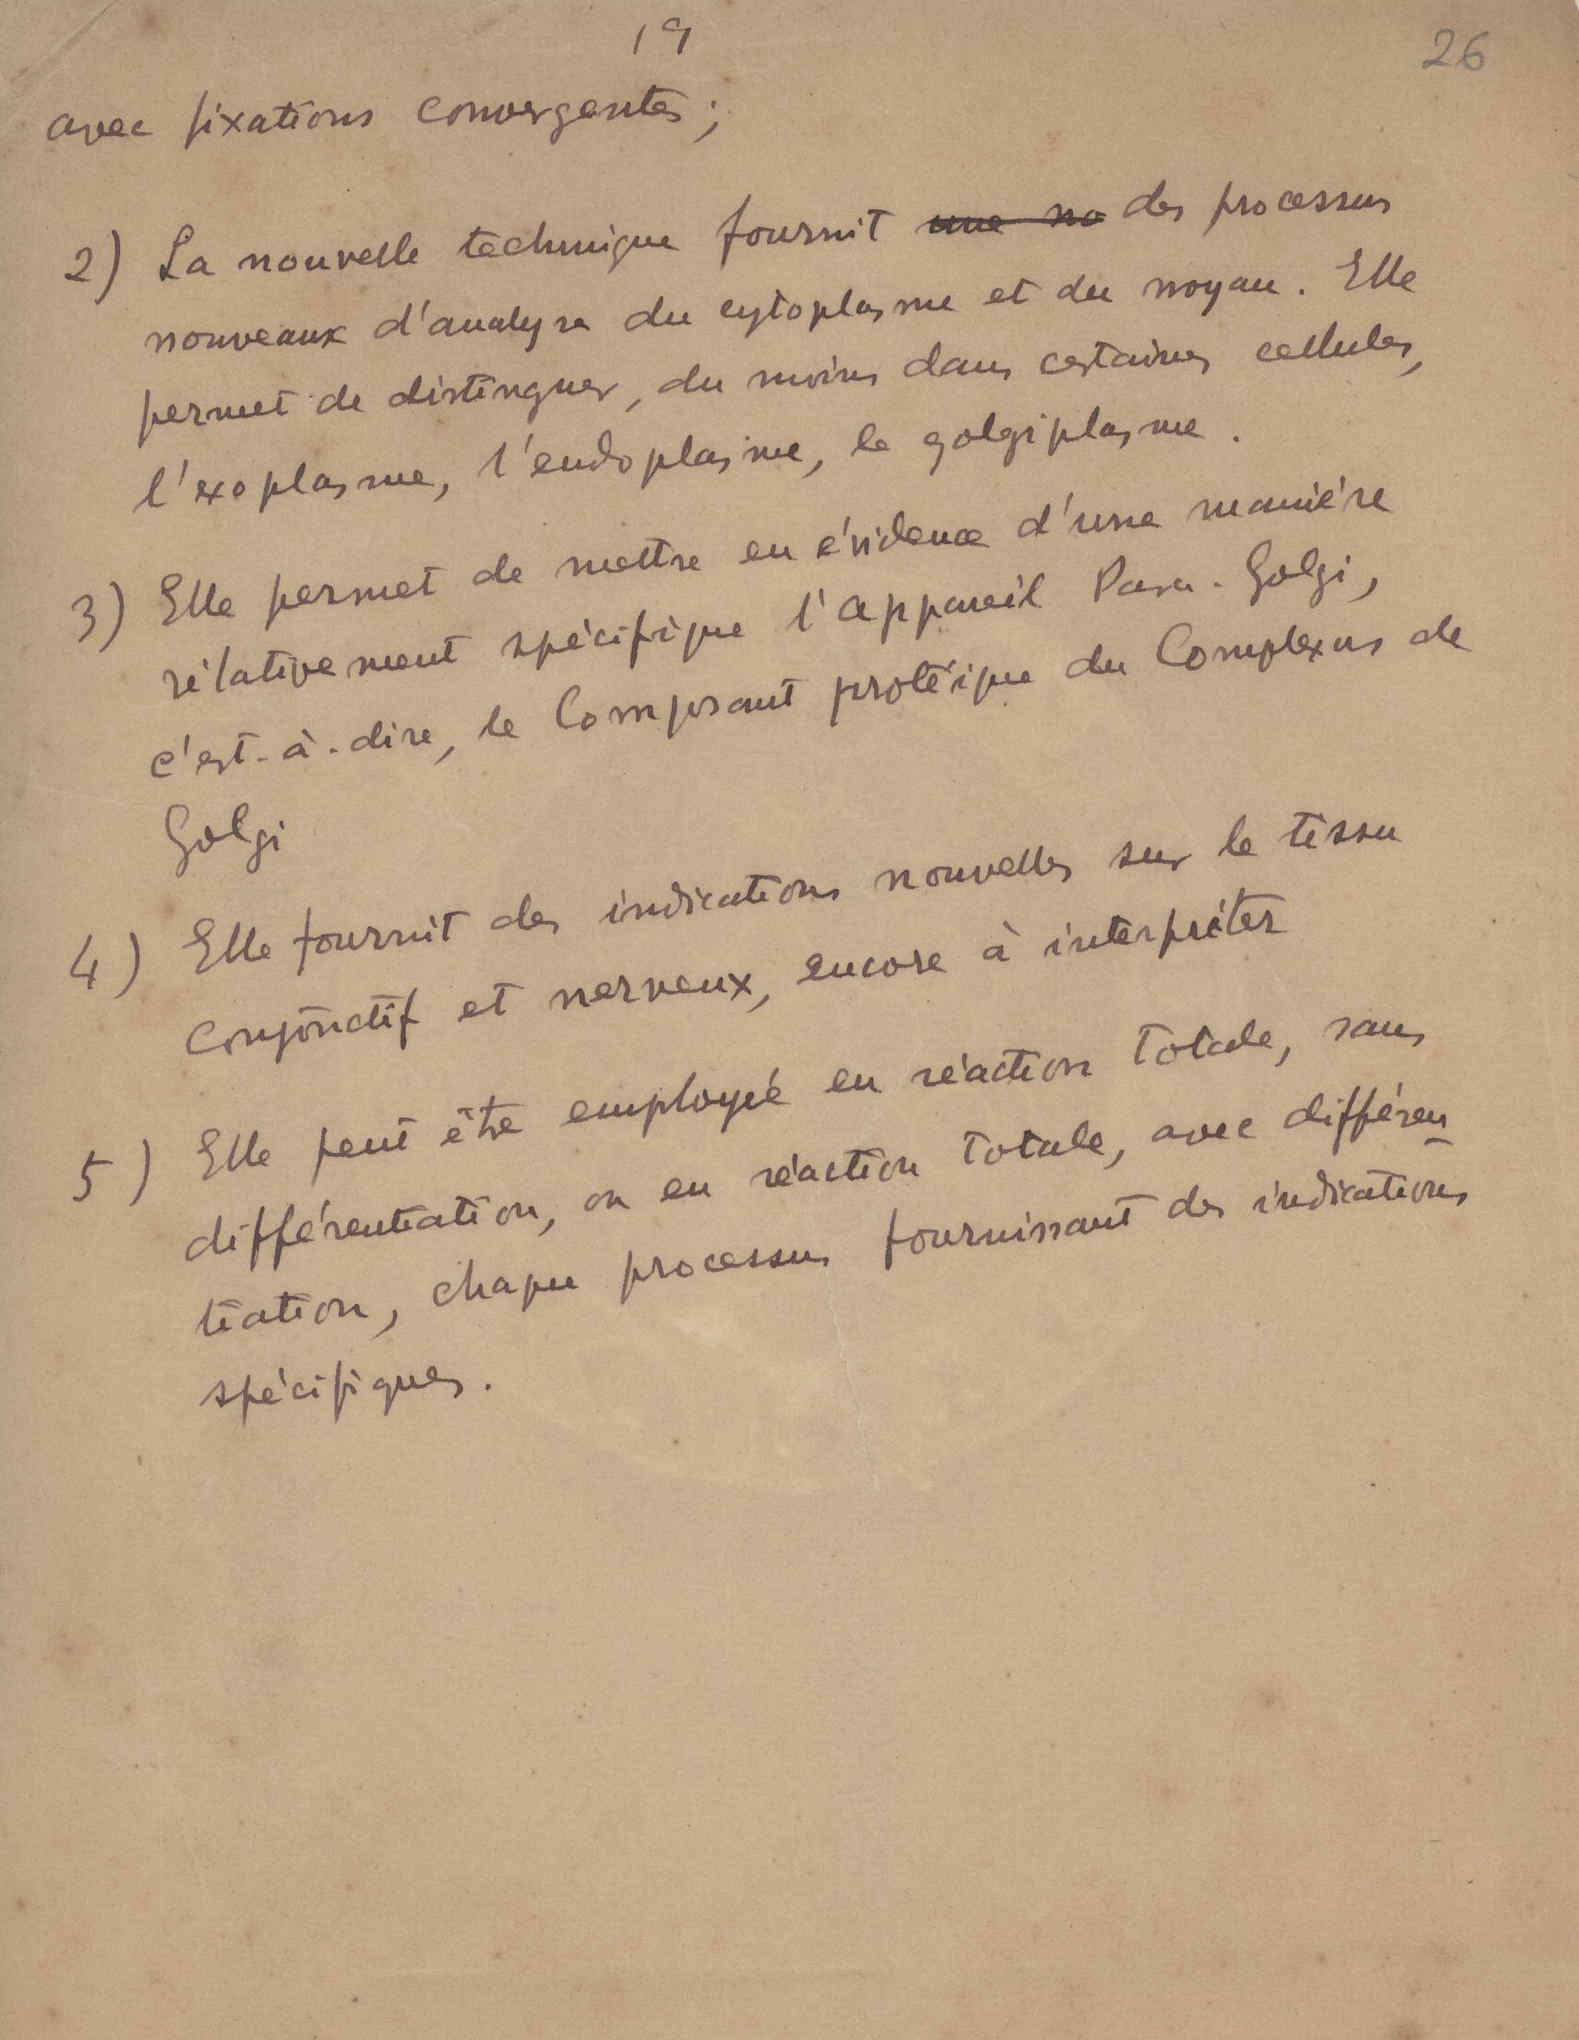 19
26
avec fixations convergentes;
2) La nouvelle technique fournit une no des processus
nouveaux d'analyse du cytoplasme et du noyau. Elle
permet de distinguer, du moins dans certaines cellules,
l'exoplasme, l'endoplasme, le golgiplasme.
3) Elle permet de mettre en évidence d'une maniére
rélativement spécifique l'appareil Para-Golgi,
c'est-à-dire, le Composant protéique du Complexus de
Golgi
4) Elle fournit des indications nouvelles sur le tissu
conjonctif et nerveux, encore à interpréter
5) Elle peut être employé en réaction totale, sans
différentiation, ou en réaction totale, avec différen
tiation, chaque processus fournissant des indications
spécifiques.